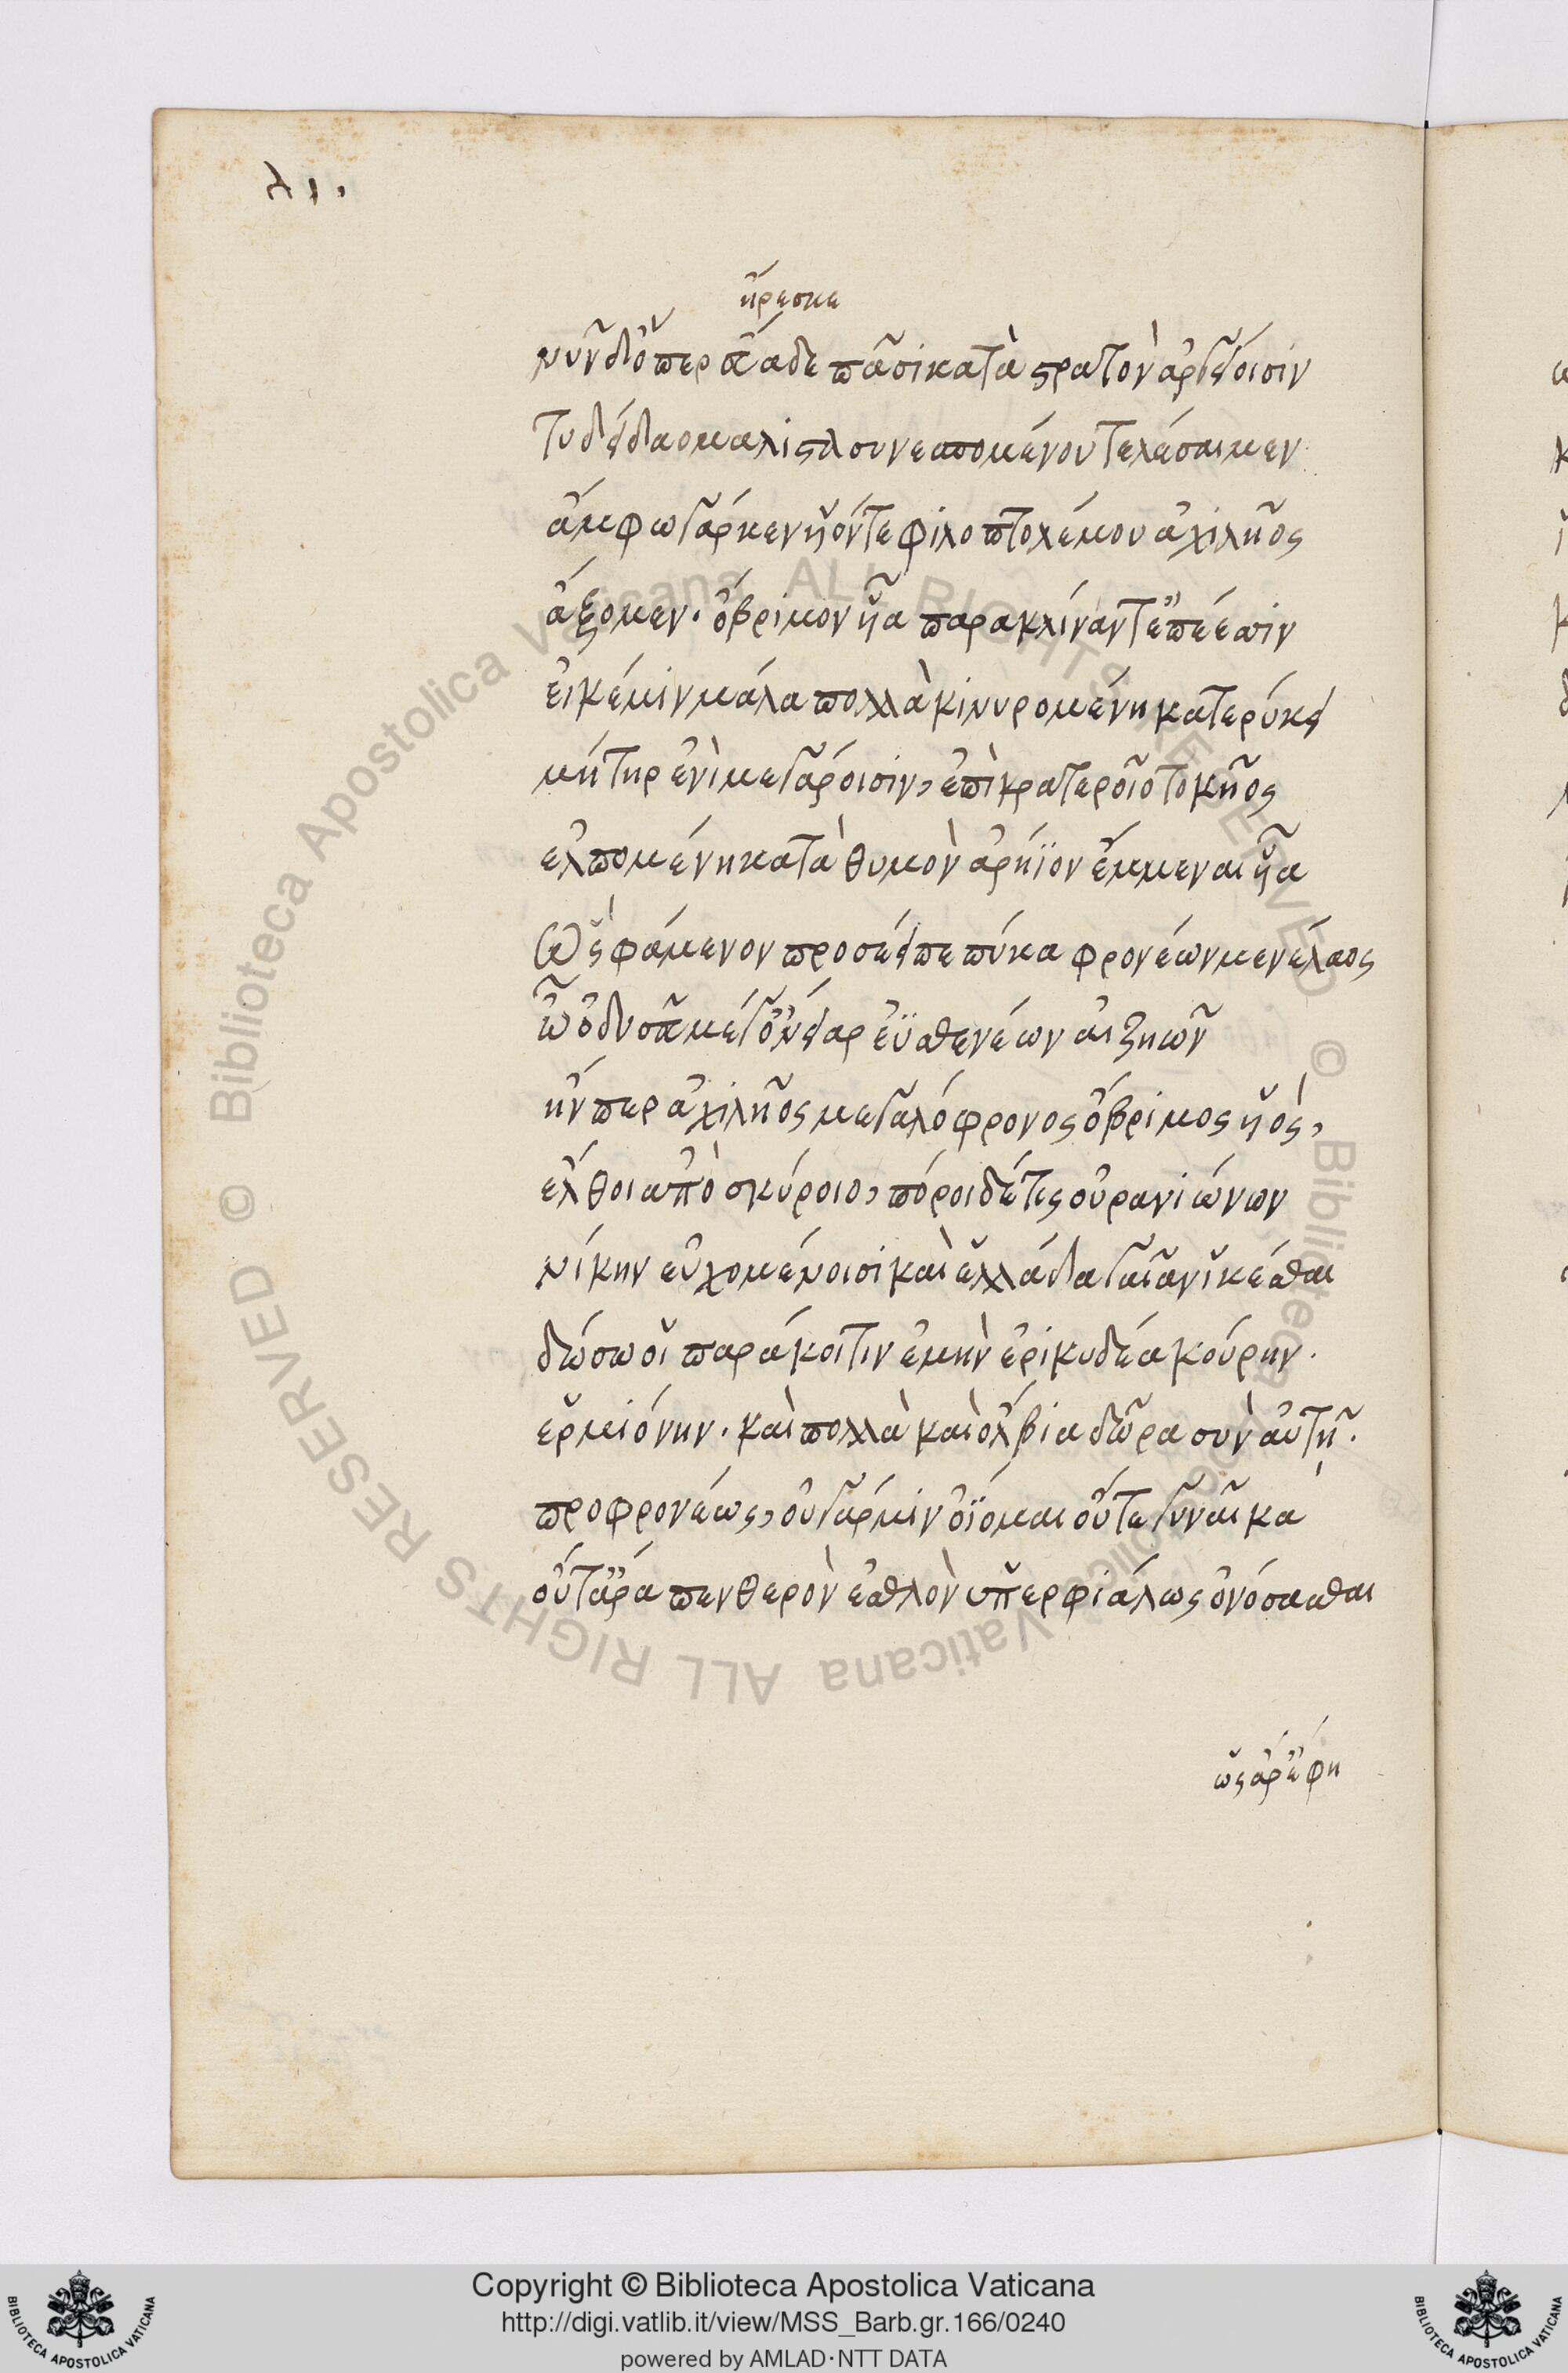 ἤρεσκε
νῦν δ' ὅπερ ἅαδε πᾶσι κατὰ στρατὸν ἀργείοισιν
τυδείδαο μάλιστα συνεσπομένου τελέσαιμεν
ἄμφω γάρ κεν ἱόντε φιλοπτολέμου ἀχιλῆος
ἄξομεν. ὄβριμον ἷα παρακλίναντ' ἐπέεσσιν
εἰ κέ μιν μάλα πολλὰ κινυρομένη κατερύκει
μήτηρ ἐνὶ μεγάροισιν, ἐπὶ κρατεροῖο τοκῆος
ἐλπομένη κατὰ θυμὸν ἀρήϊον ἔμμεναι ἷα
Ὣς φάμενον προσέειπε πύκα φρονέων μενέλαος
ὦ ὀδυσεῦ μέγ' ὄνειαρ ἐϋσθενέων αἰζηῶν
ἤν περ ἀχιλῆος μεγαλόφρονος ὄβριμος ἱὸς,
ἔλθοι ἀπὸ σκύροιο, πόροι δέ τις οὐρανιώνων
νίκην εὐχομένοισι καὶ ἑλλάδα γαῖαν ἱκέσθαι
δώσω οἱ παράκοιτιν ἐμὴν ἐρικυδέα κούρην.
ἑρμιόνην. καὶ πολλὰ καὶ ὄλβια δῶρα σὺν αὐτῇ.
προφρονέως, οὐ γάρ μιν ὀΐομαι οὔτε γυναῖκα
οὔτ' ἄρα πενθερὸν ἐσθλὸν ὑπερφιάλως ὀνόσασθαι
ὣς ἄρ' ἔφη
© Biblioteca Apostolica Vaticana ALL RIGHTS RESERVED © Biblioteca Apostolica Vaticana ALL RIGHTS RESERVED
Copyright © Biblioteca Apostolica Vaticana
http://digi.vatlib.it/view/MSS_Barb.gr.166/0240
powered by AMLAD·NTT DATA
BIBLIOTECA APOSTOLICA VATICANA
BIBLIOTECA APOSTOLICA VATICANA